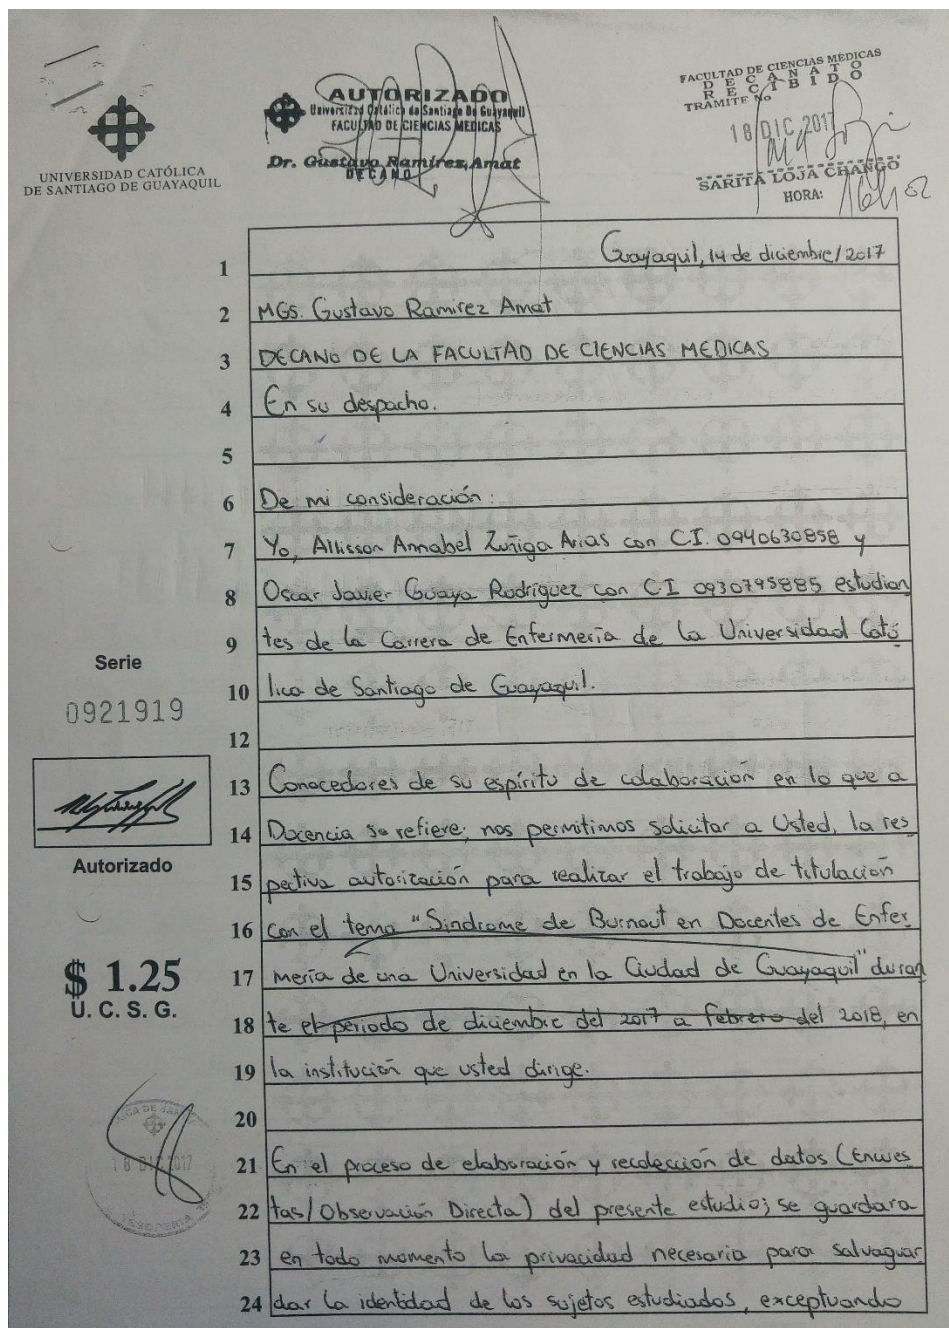 UNIVERSIDAD CATÓLICA
DE SANTIAGO DE GUAYAQUIL
AUTORIZADO
Universidad Católica de Santiago De Guayaquil
FACULTAD DE CIENCIAS MEDICAS
Dr. Gustavo Ramirez Amat
DECANO
FACULTAD DE CIENCIAS MÉDICAS
DECANATO
RECIBIDO
TRAMITE No
18 DIC 2017
SARITA LOJA CHANGO
HORA: 16h02
1 Guayaquil, 14 de diciembre/2017
2 MGS. Gustavo Ramirez Amat
3 DECANO DE LA FACULTAD DE CIENCIAS MEDICAS
4 En su despacho.
5
6 De mi consideración:
7 Yo, Allisson Annabel Zuñiga Arias con C.I. 0940630858 y
8 Oscar Javier Guaya Rodriguez con CI 0930795885 estudian
9 tes de la Carrera de Enfermería de la Universidad Cató
10 lica de Santiago de Guayaquil.
12
13 Conocedores de su espíritu de colaboración en lo que a
14 Docencia se refiere; nos permitimos solicitar a Usted, la res
15 pectiva autorización para realizar el trabajo de titulación
16 con el tema "Sindrome de Burnout en Docentes de Enfer
17 mería de una Universidad en la Ciudad de Guayaquil" duran
18 te el periodo de diciembre del 2017 a febrero del 2018, en
19 la institución que usted dirige.
20
21 En el proceso de elaboración y recolección de datos (Encues
22 tas/Observación Directa) del presente estudio; se guardara
23 en todo momento la privacidad necesaria para salvaguar
24 dar la identidad de los sujetos estudiados, exceptuando
Serie
0921919
Autorizado
$ 1.25
U. C. S. G.
18 DIC 2017
TESORERIA